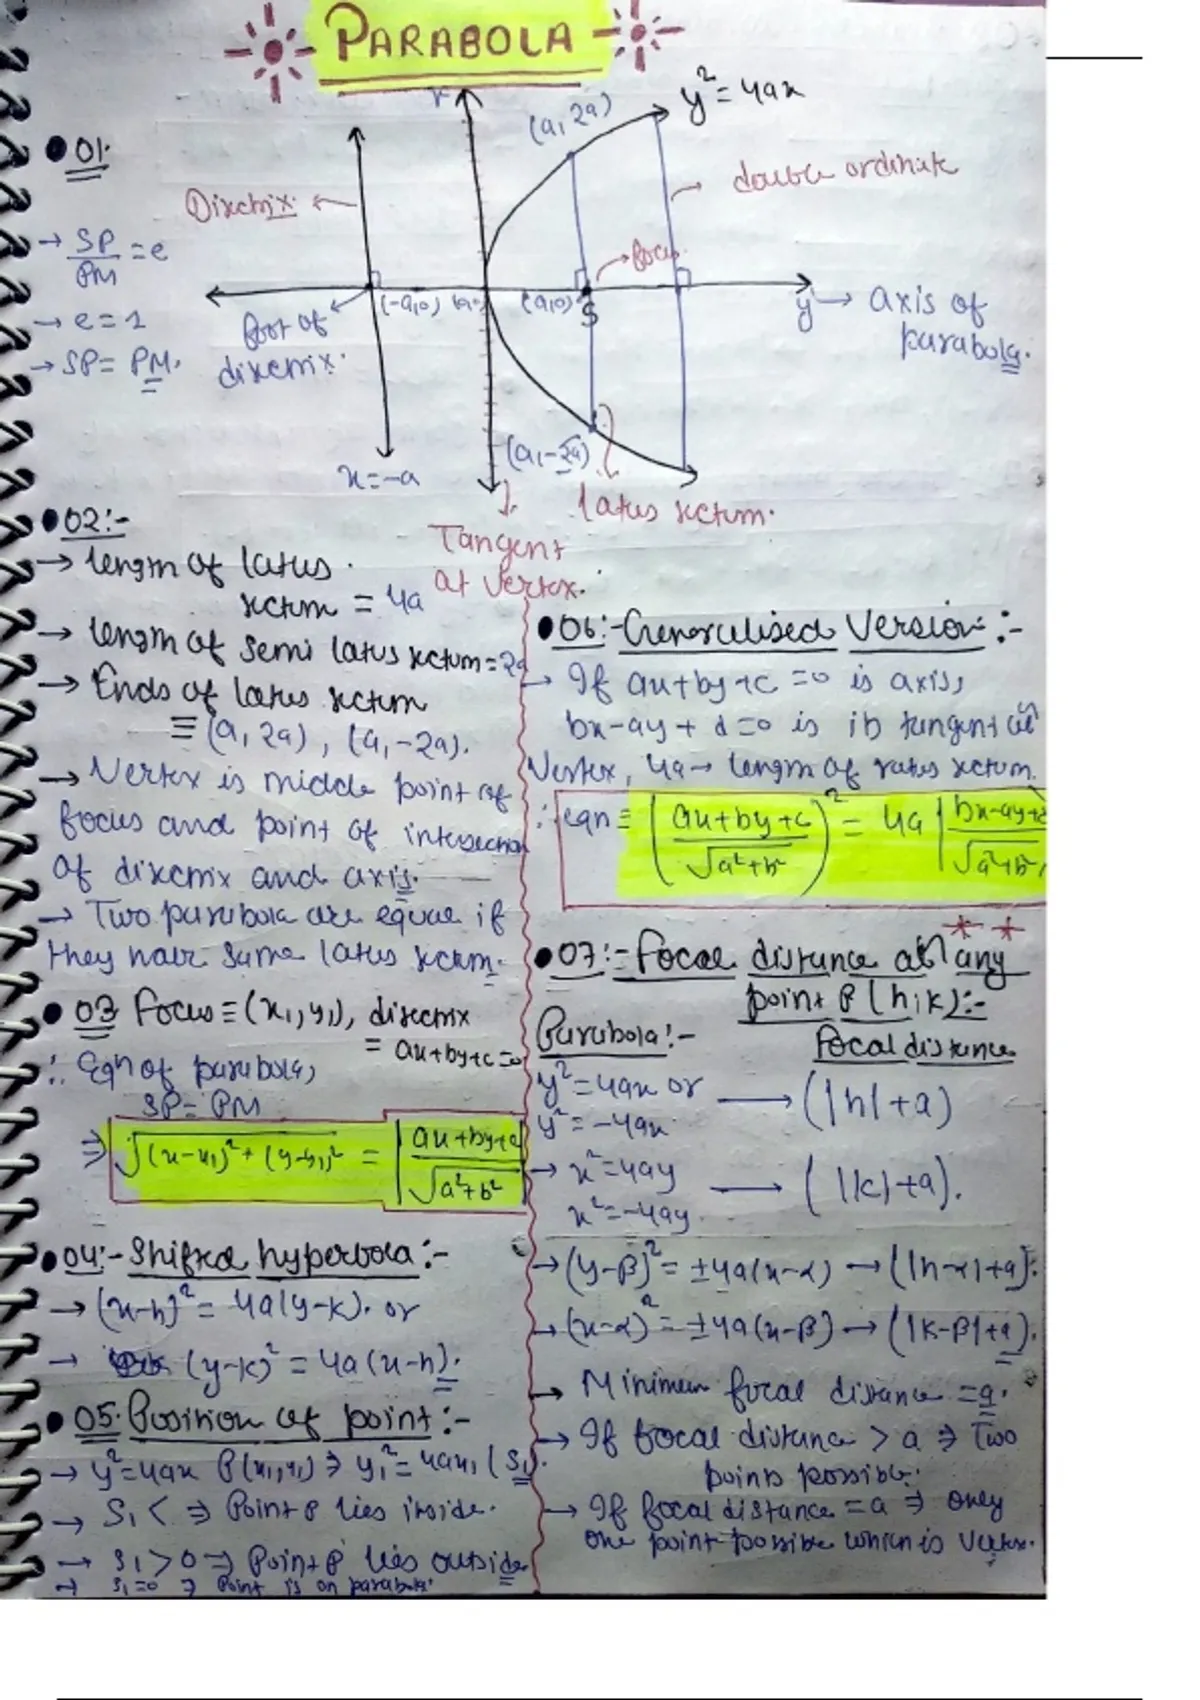 PARABOLA
y² = 4ax
(a, 2a)
double ordinate
Directrix
focus
(-a,0)
(a,0)
S
y → axis of
parabola.
foot of
directrix.
(a, -2a)
x = -a
latus rectum.
Tangent
at vertex.
● 01.
→ SP/PM = e
→ e = 1
→ SP = PM.
● 02:-
→ length of latus
rectum = 4a
→ length of semi latus rectum = 2a
→ Ends of latus rectum
≡ (a, 2a), (a, -2a).
→ Vertex is middle point of
focus and point of intersection
of directrix and axis.
→ Two parabola are equal if
they have same latus rectum.
● 03 Focus ≡ (x₁, y₁), directrix
= ax+by+c=0
∴ Eqn of parabola,
SP = PM
⇒ √(x-x₁)² + (y-y₁)² = |ax+by+c / √a²+b²|
● 04:- Shifted hyperbola:-
→ (x-h)² = 4a(y-k). or
→ (y-k)² = 4a(x-h).
● 05. Position of point:-
→ y²=4ax P(x₁,y₁) ⇒ y₁² = 4ax₁ (S₁).
→ S₁ < ⇒ Point P lies inside.
→ S₁ > 0 ⇒ Point P lies outside
→ S₁ = 0 ⇒ Point is on parabola.
● 06:- Generalised Version:-
→ If ax+by+c=0 is axis,
bx-ay+d=0 is its tangent at
Vertex, 4a → length of latus rectum.
∴ eqn ≡ (ax+by+c / √a²+b²)² = 4a |bx-ay+d / √a²+b²
● 07:- Focal distance of any
point P(h,k):-
Parabola:-
Focal distance
y² = 4ax or
y² = -4ax
→ (|h|+a)
→ x² = 4ay
x² = -4ay.
→ (|k|+a).
→ (y-β)² = ±4a(x-α) → (|h-α|+a).
→ (x-α)² = ±4a(x-β) → (|k-β|+a).
→ Minimum focal distance = a.
→ If focal distance > a ⇒ Two
points possible.
→ If focal distance = a ⇒ only
one point possible which is vertex.